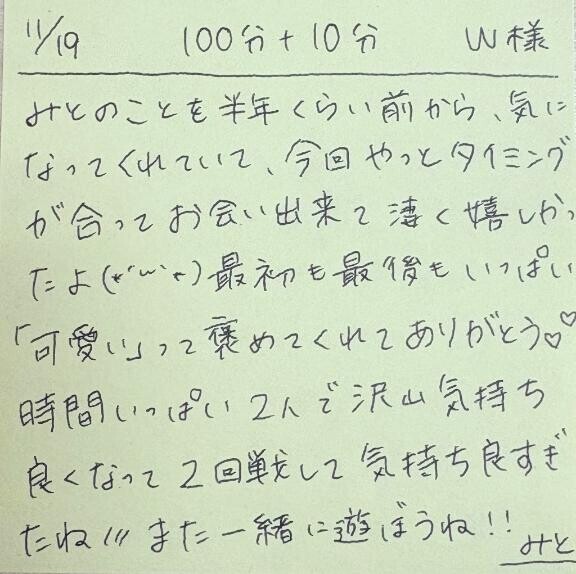 11/19 100分+10分 W様
みとのことを半年くらい前から、気に
なってくれていて、今回やっとタイミング
が合ってお会い出来て凄く嬉しかっ
たよ(*´ω`*)最初も最後もいっぱい
「可愛い」って褒めてくれてありがとう♡♡
時間いっぱい2人で沢山気持ち
良くなって2回戦して気持ち良すぎ
たね/// また一緒に遊ぼうね!!
みと